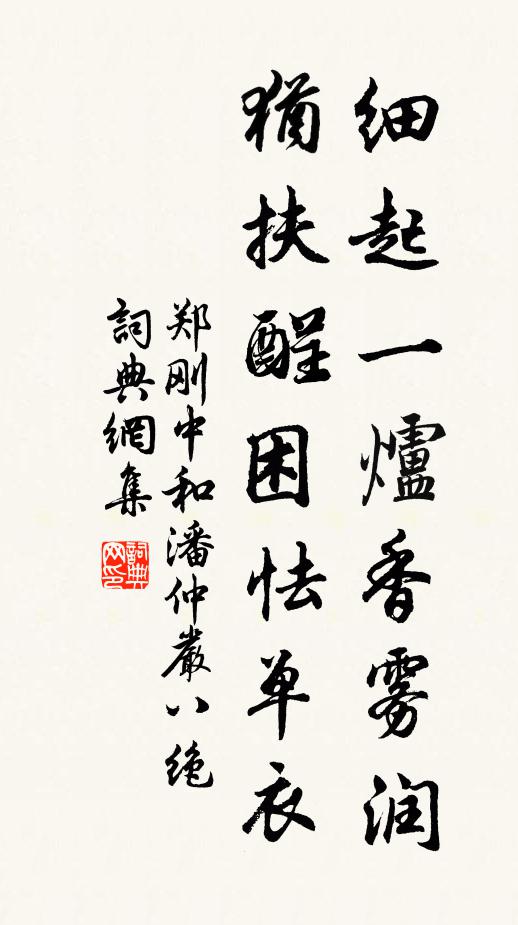 细起一爐香雾润
猶扶酲困怯单衣
郑刚中和潘仲嚴八绝
詞典網集
詞典网印